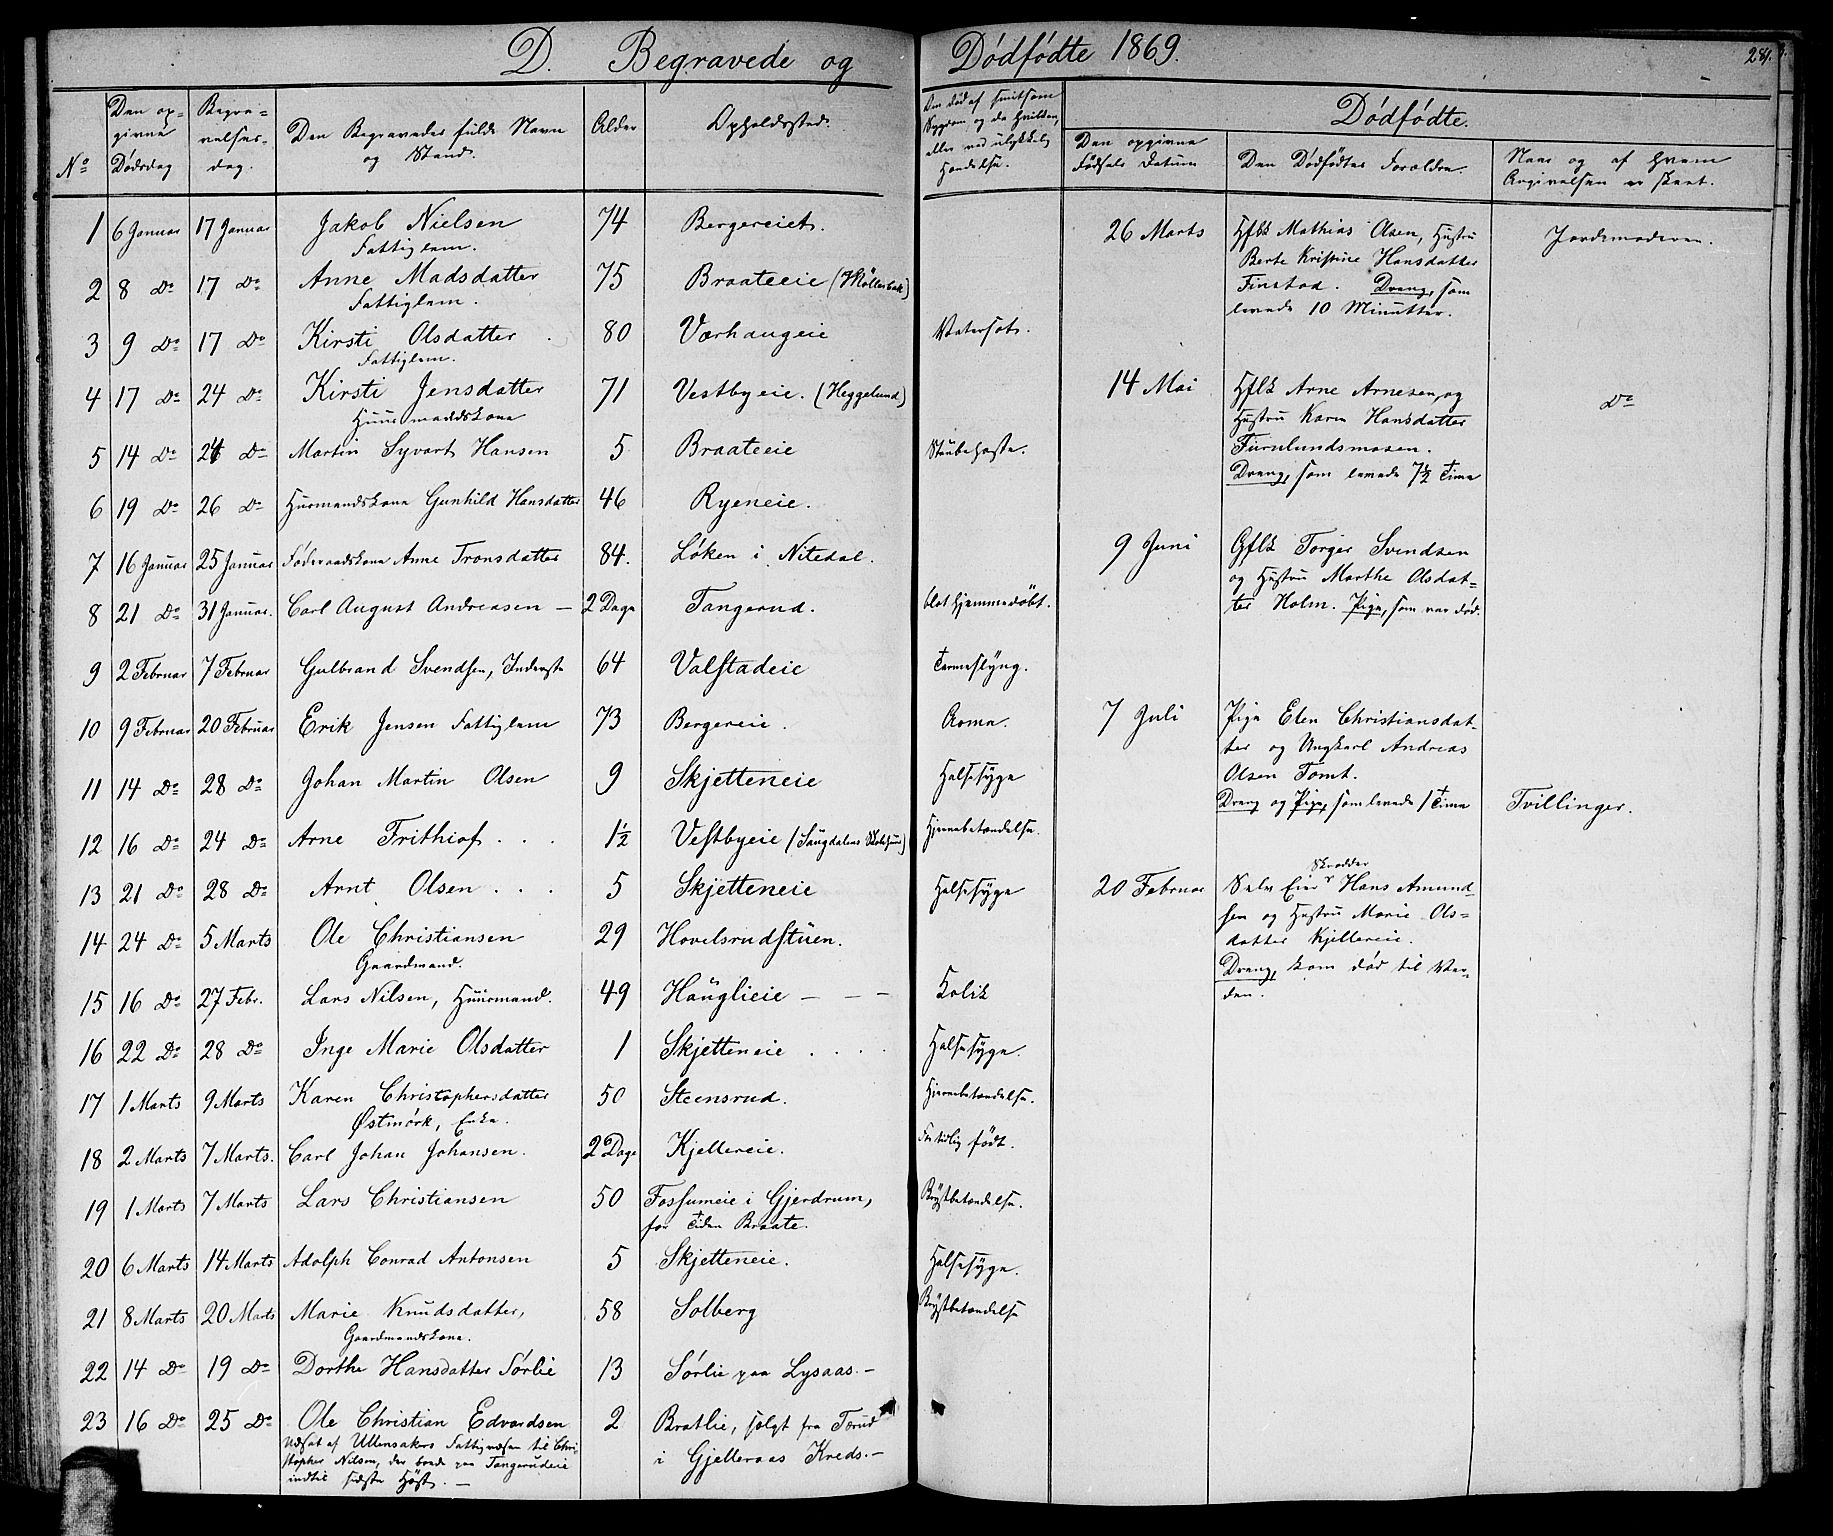 D. Begravede og Dødfødte 1869. 284.
No
Den op-
givne
Dødsdag
Begra-
velses-
dag.
Den Begravedes fulde Navn
og Stand.
Alder
Opholdssted.
Den død af smitsom
Sygdom, og da hvilken,
eller ved ulykkelig
Hændelse.
Dødfødte.
Den opgivne
Fødsels Datum
Den Dødfødtes Forældre.
Naar og af hvem
Angivelsen er skeet.
1 6 Januar 17 Januar Jakob Nielsen 74 Bergereiet.
Fattiglem.
2 8 Do 17 Do Anne Madsdatter 75 Braateeie (Møllerbak)
Fattiglem.
3 9 Do 17 Do Kirsti Olsdatter 80 Værhaugeie Vatersot.
Fattiglem.
4 17 Do 24 Do Kirsti Jensdatter 71 Vestbyeie. (Heggelund)
Huusmandskone
5 14 Do 24 Do Martin Syvart Hansen 5 Braateeie Strubehoste.
6 19 Do 26 Do Husmandskone Gunhild Hansdatter 46 Ryeneie.
7 16 Januar 25 Januar Føderaadskone Anne Tronsdatter 84. Løken i Nitedal.
8 21 Do 31 Januar. Carl August Andreasen — 2 Dage Tangerud. blot hjemmedøbt.
9 2 Februar 7 Februar Gulbrand Svendsen, Inderste 64 Valstadeie Tarmeslyng.
10 9 Februar 20 Februar Erik Jensen Fattiglem 73 Bergereie. Roma.
11 14 Do 28 Do Johan Martin Olsen 9 Skjetteneie Halssyge
12 16 Do 24 Do Arne Frithiof . . . 1½ Vestbyeie (Saugdalens Skolehuus) Hjernebetændelse.
13 21 Do 28 Do Arnt Olsen . . . 5 Skjetteneie Halssyge
14 24 Do 5 Marts Ole Christiansen 29 Hovelsrudstuen.
Gaardmand.
15 16 Do 27 Febr. Lars Nilsen, Huusmand. 49 Hauglieie — — — Kolik
16 22 Do 28 Do Inge Marie Olsdatter 1 Skjetteneie . . . . Halssyge.
17 1 Marts 9 Marts Karen Christophersdatter 50 Steensrud. Hjernebetændelse.
Østmörk, Enke.
18 2 Marts 7 Marts. Carl Johan Johansen. 2 Dage Kjellereie. For tidlig født.
19 1 Marts 7 Marts Lars Christiansen 50 Fossumeie i Gjerdrum, Brystbetændelse.
for Tiden Braate.
20 6 Marts 14 Marts Adolph Conrad Antonsen 5 Skjetteneie. Halssyge.
21 8 Marts 20 Marts Marie Knudsdatter, 58 Solberg Brystbetændelse
Gaardmandskone.
22 14 Do 19 Do Dorthe Hansdatter Sørlie 13 Sørlie paa Lysaas.—
23 16 Do 25 Do Ole Christian Edvardsen 2 Bratlie, solgt fra Tærud
i Gjelleraas Kreds.—
Udsat af Ullensakers Fattigvæsen til Chri-
stopher Nilsen, der boede paa Tangerudeie
indtil sidste Høst. —
26 Marts
Gflk Mathias Olsen, Hustru
Berte Kristine Hansdatter
Finstad. Dreng, som
levede 10 Minutter.
Jordemoderen.
14 Mai
Gflk Arne Arnesen, og
Hustru Karen Hansdatter
Furulundsmosen.
Dreng, som levede 7½ Time
Do
9 Juni
Gflk Torger Svendsen
og Hustru Marthe Olsdat-
ter Holm. Pige, som var død.
7 Juli
Pige Elen Christiansdat-
ter og Ungkarl Andreas
Olsen Tomt.
Dreng og Pige, som levede 1 Time
Tvillinger.
20 Februar
Skrædder
Selv Eier Hans Amund-
sen og Hustru Marie Ols-
datter Kjellereie.
Dreng, kom død til Ver-
den.